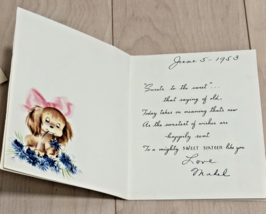 June 5 - 1953
"Sweets to the sweet"...
that saying of old,
Today takes on meaning that's new
As the sweetest of wishes are
happily sent
To a mighty SWEET SIXTEEN like you
Love
Mabel